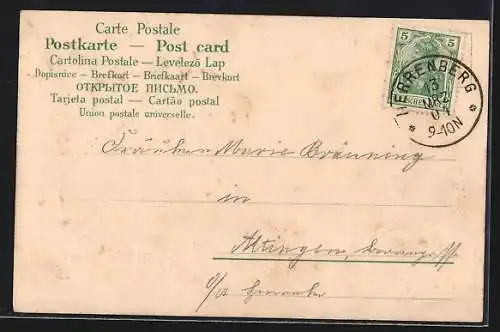 Carte Postale
Postkarte — Post card
Cartolina Postale — Levelező Lap
Dopisnice — Brefkort — Briefkaart — Brevkort
ОТКРЫТОЕ ПИСЬМО.
Tarjeta postal — Cartão postal
Union postale universelle.
5 5
HERRENBERG
13
MRZ
9-10N
Fräulein Marie Bräuning
in
Altingen,